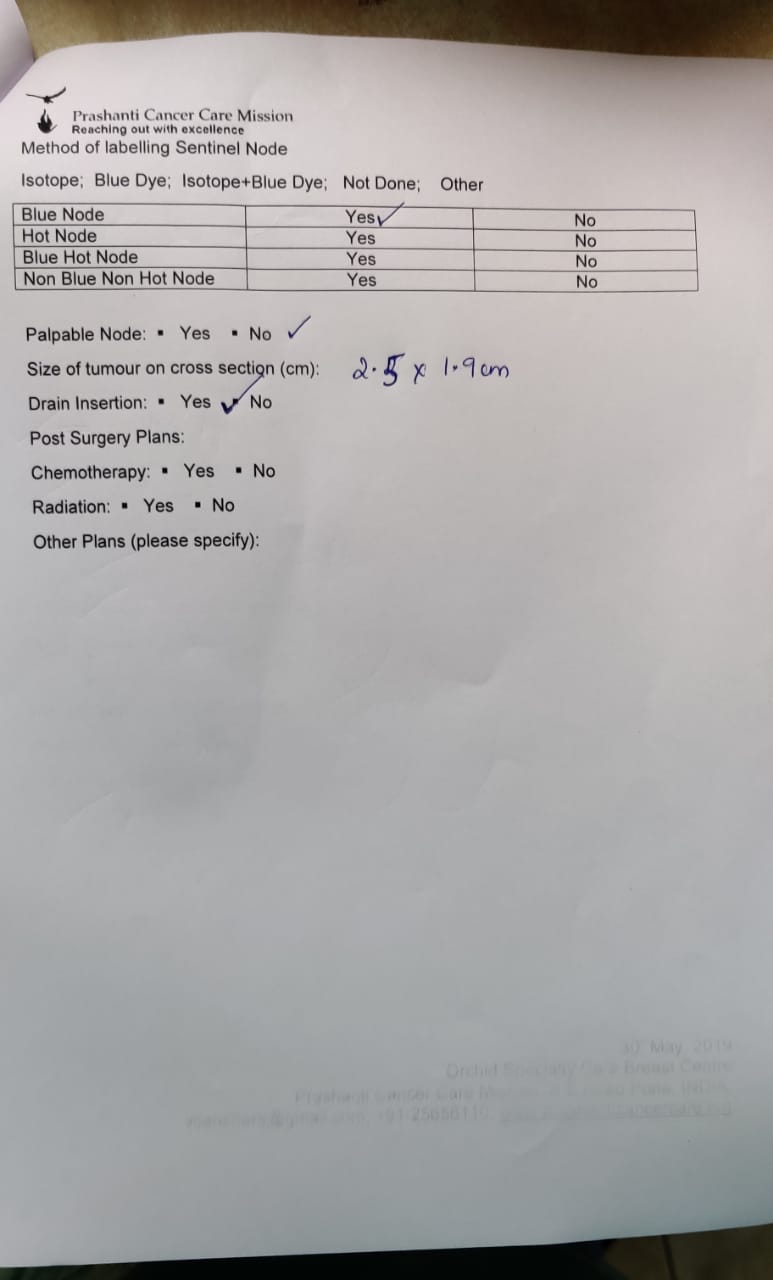 Prashanti Cancer Care Mission
Reaching out with excellence
Method of labelling Sentinel Node
Isotope; Blue Dye; Isotope+Blue Dye; Not Done; Other
Blue Node Yes✓ No
Hot Node Yes No
Blue Hot Node Yes No
Non Blue Non Hot Node Yes No
Palpable Node: ▪ Yes ▪ No ✓
Size of tumour on cross section (cm): 2.5 x 1.9 cm
Drain Insertion: ▪ Yes ✓ ▪ No
Post Surgery Plans:
Chemotherapy: ▪ Yes ▪ No
Radiation: ▪ Yes ▪ No
Other Plans (please specify):
30 May 2019
Orchid Specialty Care Breast Centre
Prashanti Cancer Care INDIA